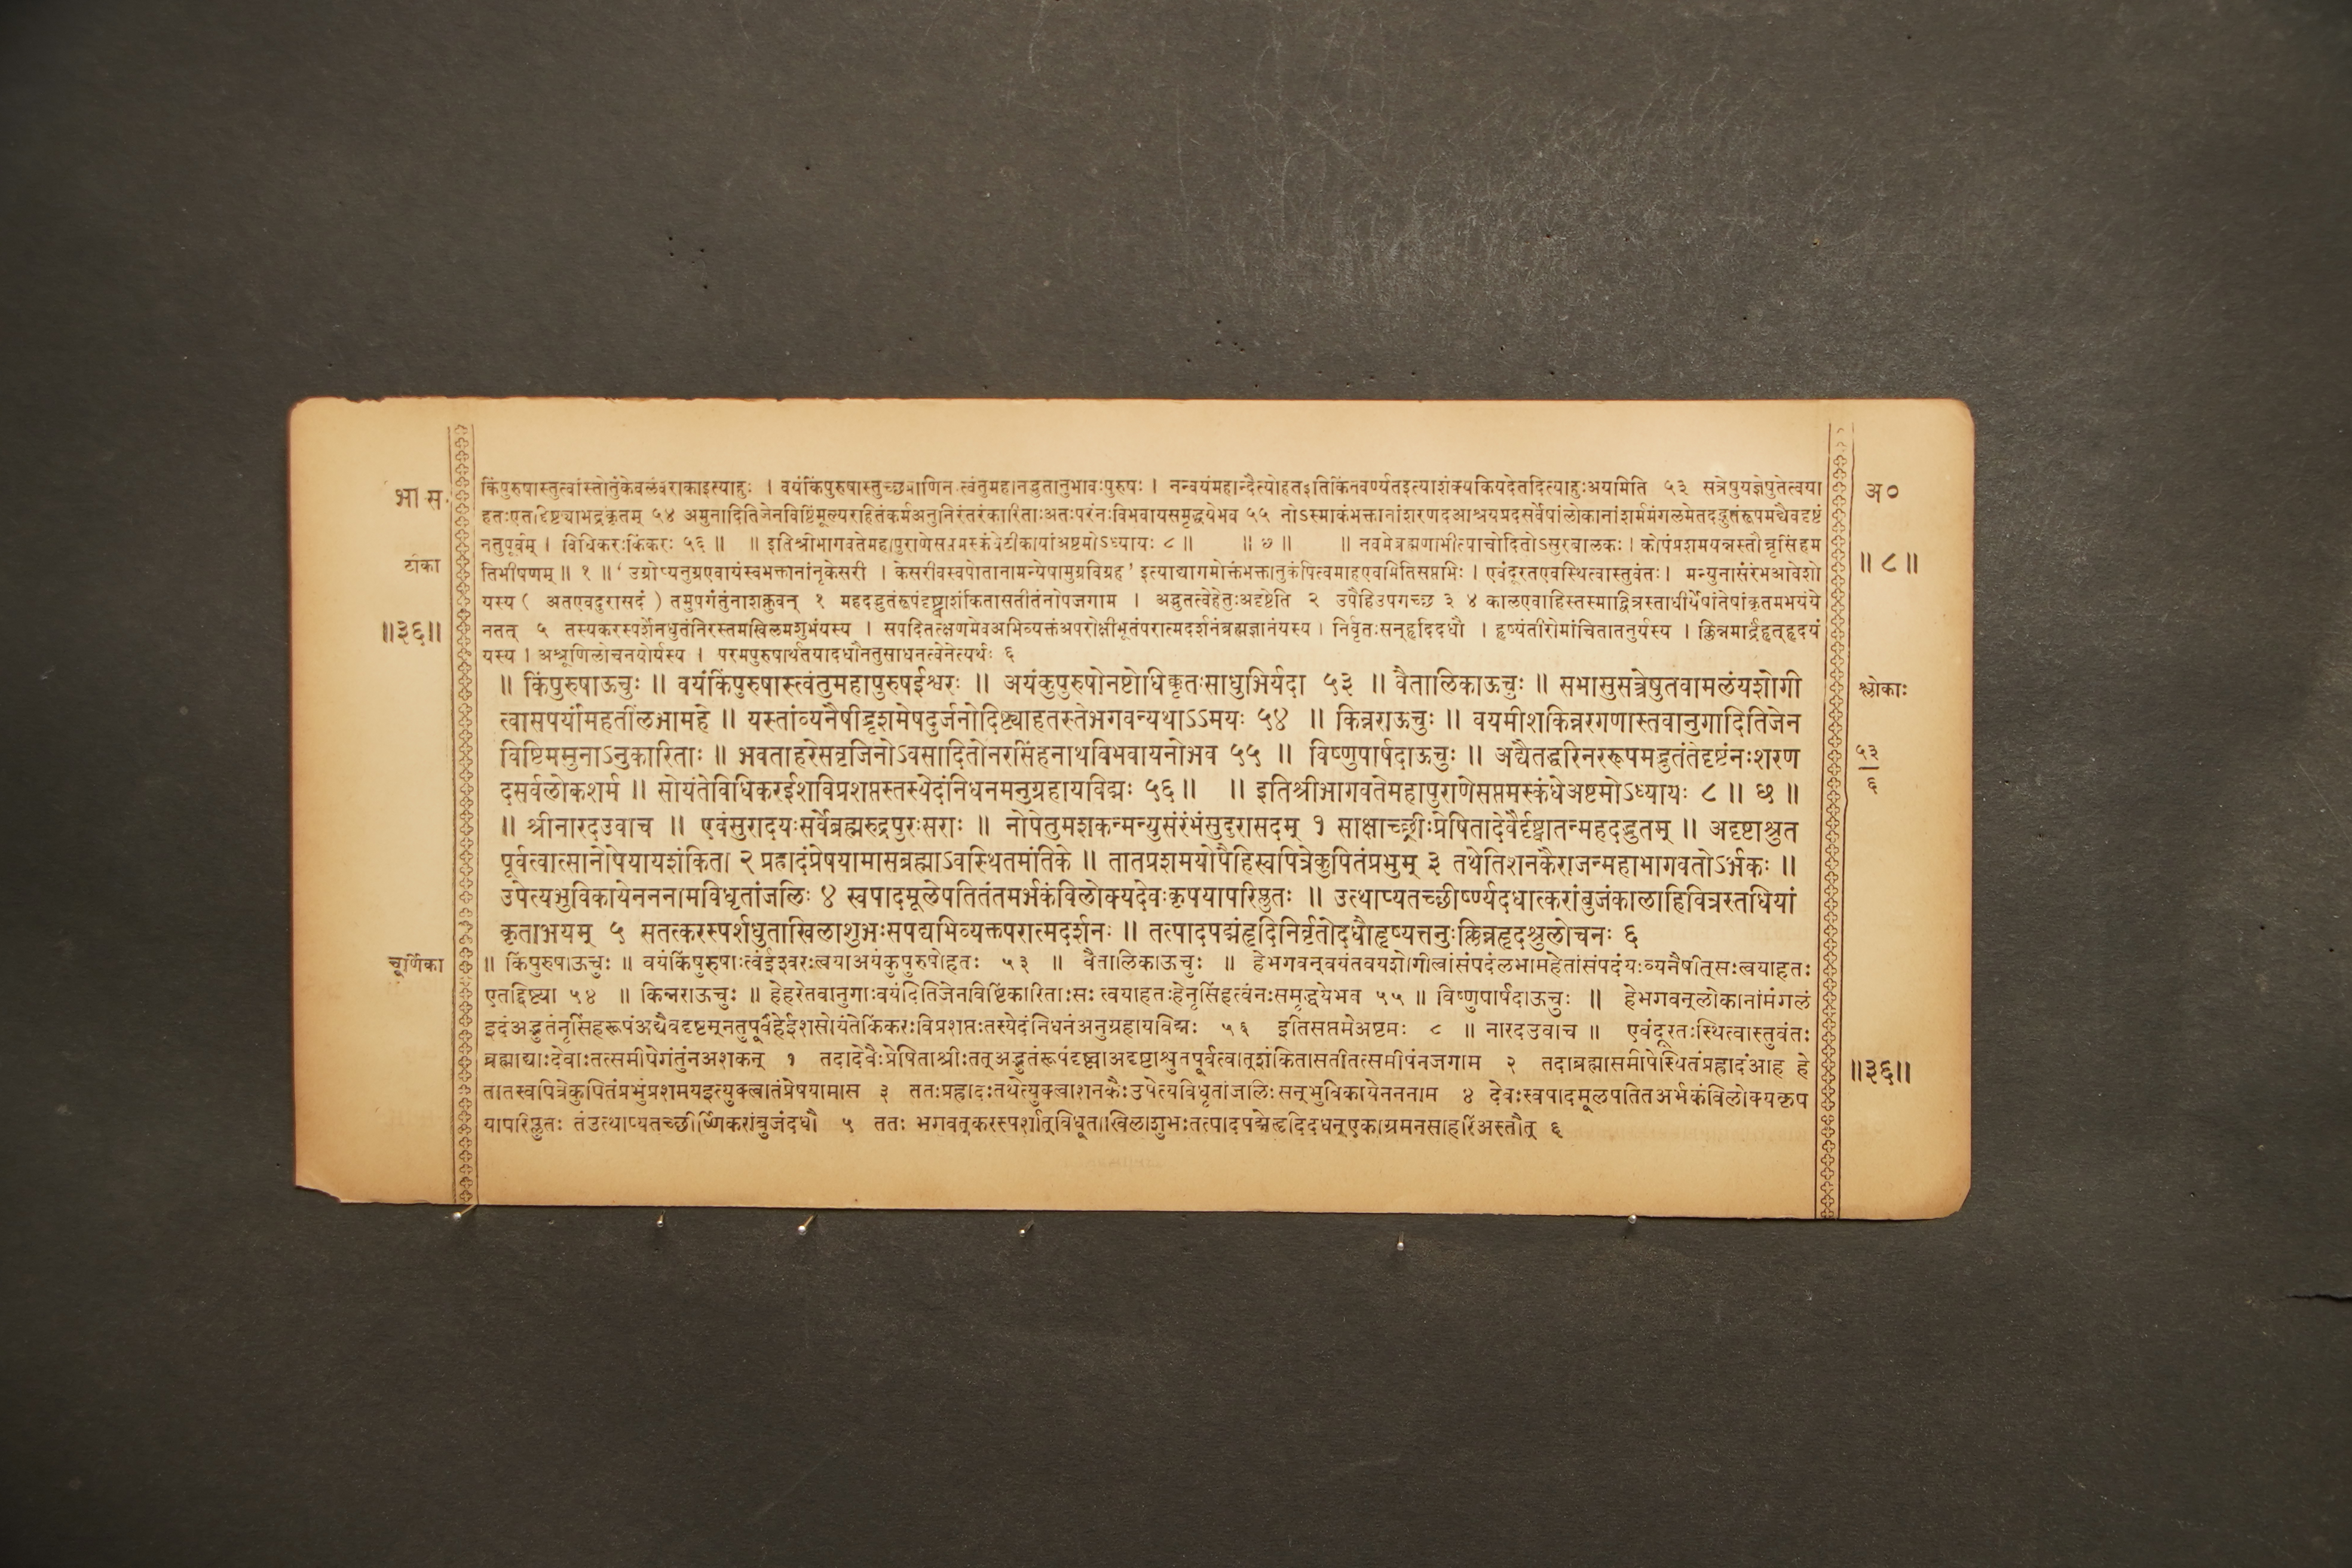 भा स.
टीका
॥३६॥
चूर्णिका
किंपुरुषास्तुत्वांस्तोतुंकेवलंवराकाइत्याहुः । वयंकिंपुरुषास्तुच्छप्राणिनः त्वंतुमहानद्भुतानुभावःपुरुषः । नन्वयंमहान्दैत्योहतइतिकिंनवर्ण्यतइत्याशंक्यकियदेतदित्याहुःअयमिति ५३ सत्रेषुयज्ञेषुतेत्वया
हतःएतद्दिष्ट्याभद्रंकृतम् ५४ अमुनादितिजेनविष्टिंमूल्यराहितंकर्मअनुनिरंतरंकारिताःअतःपरंनःविभवायसमृद्धयेभव ५५ नोऽस्माकंभक्तानांशरणदआश्रयप्रदसर्वेषांलोकानांशर्ममंगलमेतदद्भुतंरूपमद्यैवदृष्टं
नतुपूर्वम् । विधिकरःकिंकरः ५६ ॥ ॥ इतिश्रीभागवतेमहापुराणेसप्तमस्कंधेटीकायांअष्टमोऽध्यायः ८ ॥ ॥ ७ ॥ ॥ नवमेब्रह्मणाभीत्याचोदितोऽसुरबालकः । कोपंप्रशमयन्नस्तौन्नृसिंहम
तिभीषणम् ॥ १ ॥ ‘ उग्रोप्यनुग्रएवायंस्वभक्तानांनृकेसरी । केसरीवस्वपोतानामन्येषामुग्रविग्रह’ इत्याद्यागमोक्तंभक्तानुकंपित्वमाहएवमितिसप्तभिः । एवंदूरतएवस्थित्वास्तुवंतः। मन्युनासंरंभआवेशो
यस्य ( अतएवदुरासदं ) तमुपगंतुंनाशक्नुवन् १ महदद्भुतंरूपंदृष्ट्वाशंकितासतीतंनोपजगाम । अद्भुतत्वेहेतुःअदृष्टेति २ उपैहिउपगच्छ ३ ४ कालएवाहिस्तस्माद्वित्रस्ताधीर्येषांतेषांकृतमभयंये
नतत् ५ तस्यकरस्पर्शेनधुतंनिरस्तमखिलमशुभंयस्य । सपदितत्क्षणमेवअभिव्यक्तंअपरोक्षीभूतंपरात्मदर्शनंब्रह्मज्ञानंयस्य । निर्वृतःसन्हृदिदधौ । हृष्यंतीरोमांचितातनुर्यस्य । क्लिन्नमार्द्रंहृत्हृदयं
यस्य । अश्रूणिलोचनयोर्यस्य । परमपुरुषार्थतयादधौनतुसाधनत्वेनेत्यर्थः ६
॥ किंपुरुषाऊचुः ॥ वयंकिंपुरुषास्त्वंतुमहापुरुषईश्वरः ॥ अयंकुपुरुषोनष्टोधिक्कृतःसाधुभिर्यदा ५३ ॥ वैतालिकाऊचुः ॥ सभासुसत्रेषुतवामलंयशोगी
त्वासपर्यांमहतींलभामहे ॥ यस्तांव्यनैषीद्भृशमेषदुर्जनोदिष्ट्याहतस्तेभगवन्यथाऽऽमयः ५४ ॥ किन्नराऊचुः ॥ वयमीशकिन्नरगणास्तवानुगादितिजेन
विष्टिममुनाऽनुकारिताः ॥ भवताहरेसवृजिनोऽवसादितोनरसिंहनाथविभवायनोभव ५५ ॥ विष्णुपार्षदाऊचुः ॥ अद्यैतद्धरिनररूपमद्भुतंतेदृष्टंनःशरण
दसर्वलोकशर्म ॥ सोयंतेविधिकरईशविप्रशप्तस्तस्येदंनिधनमनुग्रहायविद्मः ५६ ॥ ॥ इतिश्रीभागवतेमहापुराणेसप्तमस्कंधेअष्टमोऽध्यायः ८ ॥ छ ॥
॥ श्रीनारदउवाच ॥ एवंसुरादयःसर्वेब्रह्मरुद्रपुरःसराः ॥ नोपैतुमशकन्मन्युसंरंभंसुदुरासदम् १ साक्षाच्छ्रीःप्रेषितादेवैर्दृष्ट्वातन्महदद्भुतम् ॥ अदृष्टाश्रुत
पूर्वत्वात्सानोपेयायशंकिता २ प्रह्लादंप्रेषयामासब्रह्माऽवस्थितमंतिके ॥ तातप्रशमयोपैहिस्वपित्रेकुपितंप्रभुम् ३ तथेतिशनकैराजन्महाभागवतोऽर्भकः ॥
उपेत्यभुविकायेनननामविधृतांजलिः ४ स्वपादमूलेपतितंतमर्भकंविलोक्यदेवःकृपयापरिप्लुतः ॥ उत्थाप्यतच्छीर्ष्ण्यदधात्करांबुजंकालाहिवित्रस्तधियां
कृताभयम् ५ सतत्करस्पर्शधुताखिलाशुभःसपद्यभिव्यक्तपरात्मदर्शनः ॥ तत्पादपद्मंहृदिनिर्वृतोदधौहृष्यत्तनुःक्लिन्नहृदश्रुलोचनः ६
॥ किंपुरुषाऊचुः ॥ वयंकिंपुरुषाःत्वंईश्वरःत्वयाअयंकुपुरुषोहतः ५३ ॥ वैतालिकाऊचुः ॥ हेभगवन्वयंतवयशोगीत्वांसंपदंलभामहेतांसंपदंयःव्यनैषीत्सःत्वयाहतः
एतद्दिष्ट्या ५४ ॥ किन्नराऊचुः ॥ हेहरेतवानुगाःवयंदितिजेनविष्टिंकारिताःसः त्वयाहतःहेनृसिंहत्वंनःसमृद्धयेभव ५५ ॥ विष्णुपार्षदाऊचुः ॥ हेभगवन्लोकानांमंगलं
इदंअद्भुतंनृसिंहरूपंअद्यैवदृष्टम्नतुपूर्वंहेईशसोयंतेकिंकरःविप्रशप्तःतस्येदंनिधनंअनुग्रहायविद्मः ५६ इतिसप्तमेअष्टमः ८ ॥ नारदउवाच ॥ एवंदूरतःस्थित्वास्तुवंतः
ब्रह्माद्याःदेवाःतत्समीपेगंतुंनअशकन् १ तदादेवैःप्रेषिताश्रीःतत्अद्भुतंरूपंदृष्ट्वाअदृष्टाश्रुतपूर्वत्वात्शंकितासतीतत्समीपंनजगाम २ तदाब्रह्मासमीपेस्थितंप्रह्लादंआह हे
तातस्वपित्रेकुपितंप्रभुंप्रशमयइत्युक्त्वातंप्रेषयामास ३ ततःप्रह्लादःतथेत्युक्त्वाशनकैःउपेत्यविधृतांजलिःसन्भुविकायेनननाम ४ देवःस्वपादमूलपतितअर्भकंविलोक्यकृप
यापरिप्लुतः तंउत्थाप्यतच्छीर्ष्णिकरांबुजंदधौ ५ ततः भगवत्करस्पर्शात्विधूताखिलाशुभःतत्पादपद्मेहृदिदधन्एकाग्रमनसाहरिंअस्तौत् ६
अ०
॥ ८ ॥
श्लोकाः
५३
६
॥३६॥